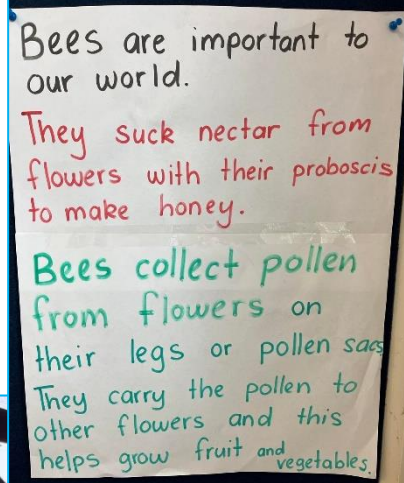 Bees are important to
our world.
They suck nectar from
flowers with their proboscis
to make honey.
Bees collect pollen
from flowers on
their legs or pollen sacs
They carry the pollen to
other flowers and this
helps grow fruit and
vegetables.